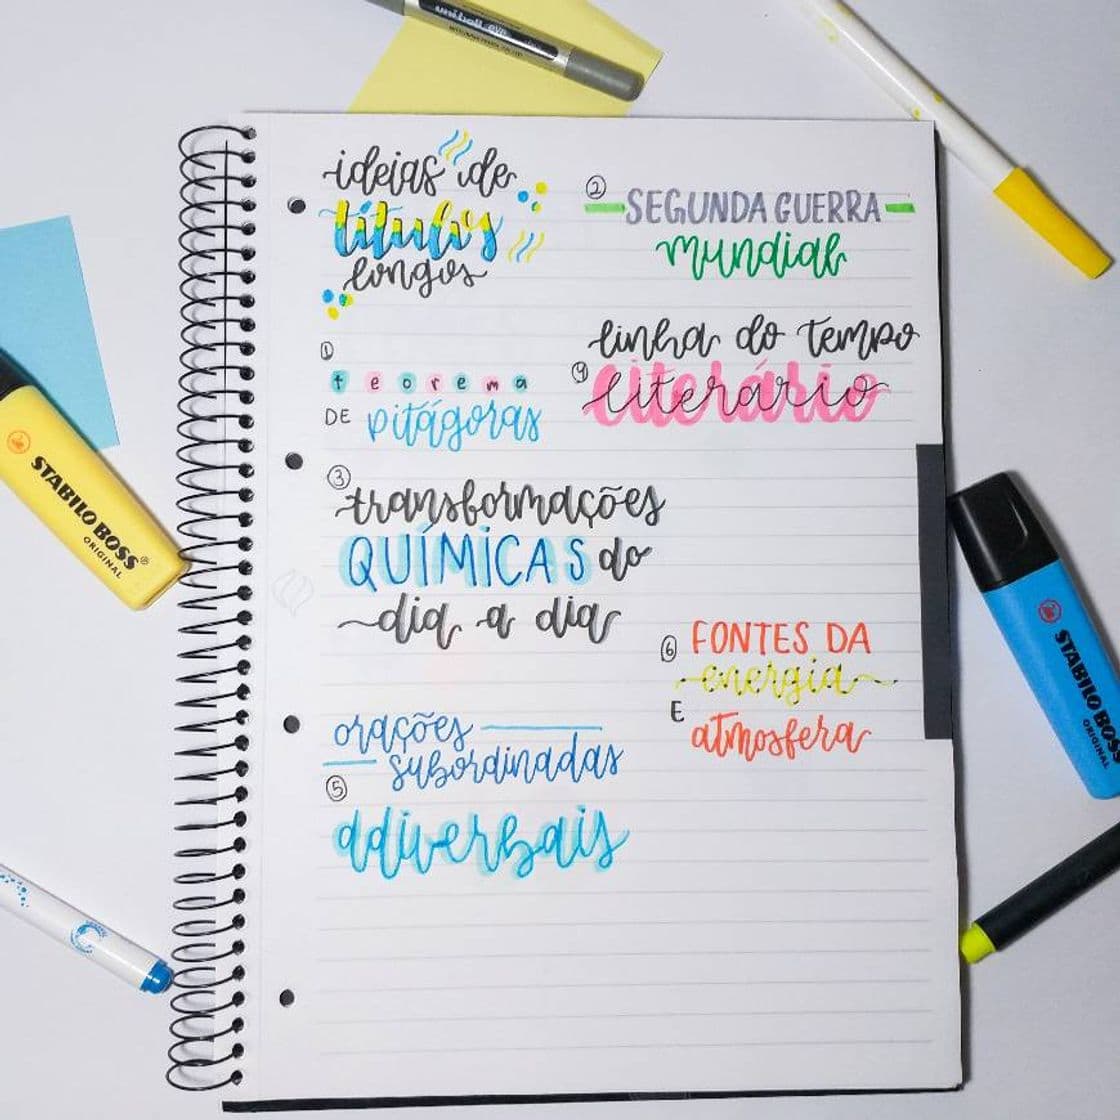 ideias de
títulos
longos
①
teorema
DE pitágoras
②
SEGUNDA GUERRA
mundial
③
transformações
QUÍMICAS do
dia a dia
④
linha do tempo
literário
⑤
orações
subordinadas
adiverbais
⑥
FONTES DA
energia
E
atmosfera
STABILO BOSS®
ORIGINAL
STABILO BOSS
ORIGINAL
uniball eye